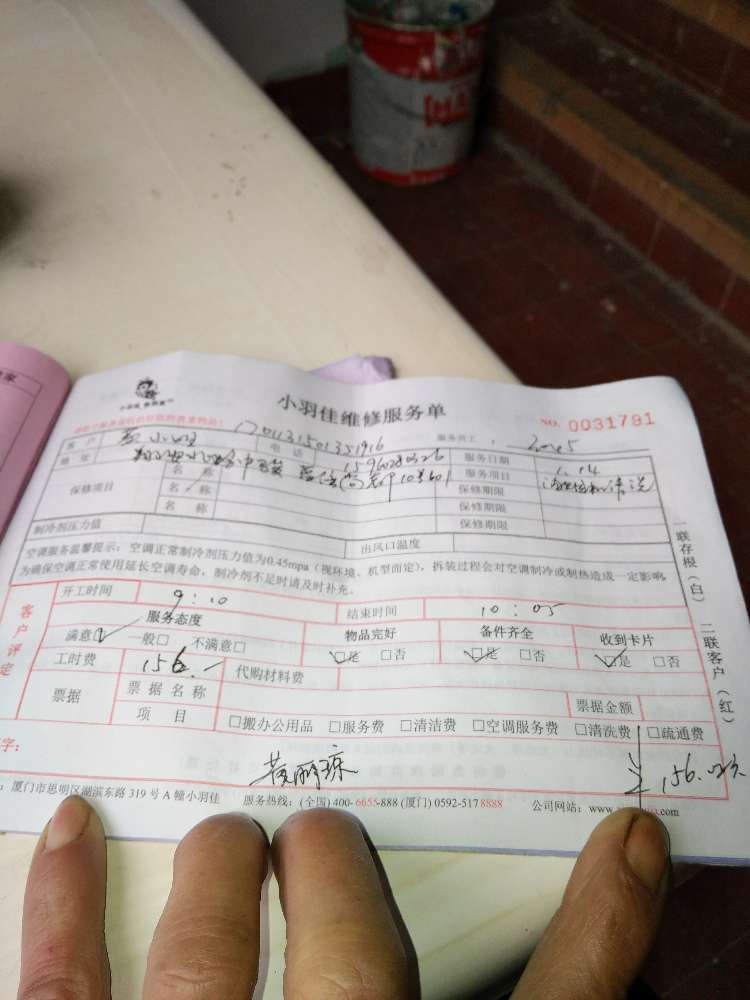 小羽佳维修服务单
NO. 0031791
客户 小姐 1701131501351916 服务员工：
地址 电话 服务日期 1.14
保修项目 名称 服务项目 清洗
名称 保修期限
名称 保修期限
制冷剂压力值 保修期限
空调服务温馨提示：空调正常制冷剂压力值为0.45mpa（视环境、机型而定），拆装过程会对空调制冷或制热造成一定影响，
为确保空调正常使用延长空调寿命，制冷剂不足时请及时补充。
出风口温度
一联存根（白） 二联客户（红）
客户评定
开工时间 9:10 结束时间 10:05
服务态度 物品完好 备件齐全 收到卡片
满意□ 一般□ 不满意□ □是 □否 □是 □否 □是 □否
工时费 156.- 代购材料费
票据 票据名称 票据金额
项目 □搬办公用品 □服务费 □清洁费 □空调服务费 □清洗费 □疏通费
字：
黄丽琼 156.
厦门市思明区湖滨东路 319 号 A 幢小羽佳 服务热线：(全国) 400-6655-888 (厦门) 0592-517 8888 公司网站：www. .com